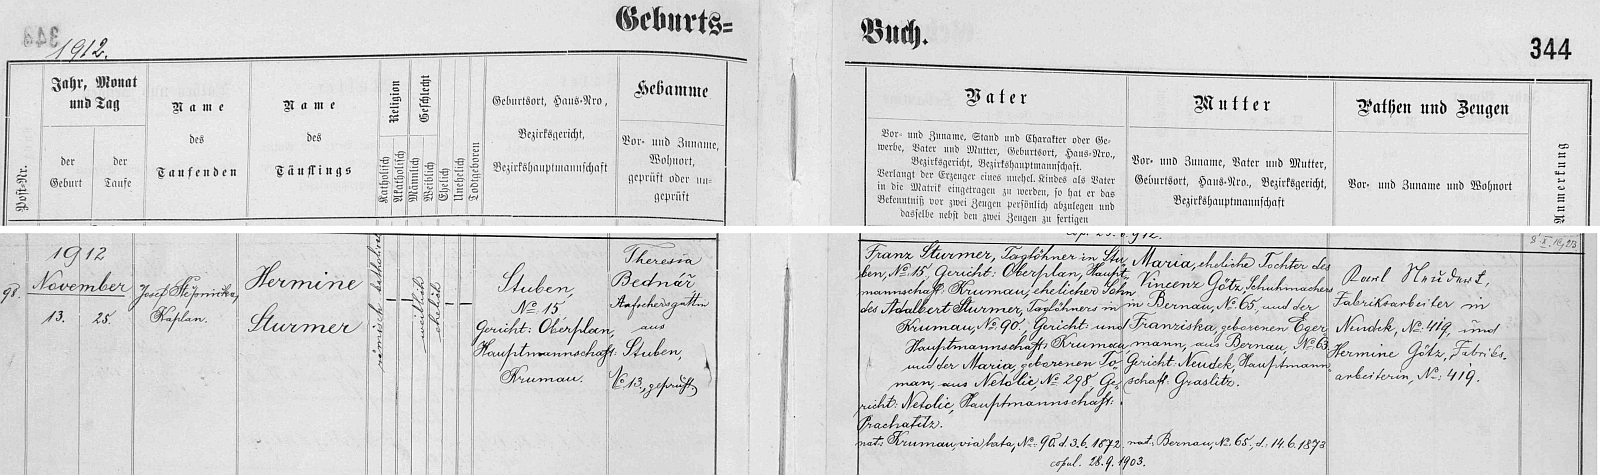 Geburts=
Buch.
344
344
1912.
Post=Nr.
Jahr, Monat
und Tag
der
Geburt
der
Taufe
Name
des
Taufenden
Name
des
Täuflings
Religion
Katholisch
Akatholisch
Geschlecht
Männlich
Weiblich
Ehelich
Unehelich
Todtgeboren
Geburtsort, Haus=Nro,
Bezirksgericht,
Bezirkshauptmannschaft
Hebamme
Vor= und Zuname,
Wohnort,
geprüft oder un=
geprüft
Vater
Vor= und Zuname, Stand und Charakter oder Ge=
werbe, Vater und Mutter, Geburtsort, Haus=Nro.,
Bezirksgericht, Bezirkshauptmannschaft.
Verlangt der Erzeuger eines unehel. Kindes als Vater
in die Matrik eingetragen zu werden, so hat er das
Bekenntniß vor zwei Zeugen persönlich abzulegen und
dasselbe nebst den zwei Zeugen zu fertigen
Mutter
Vor= und Zuname, Vater und Mutter,
Geburtsort, Haus=Nro., Bezirksgericht,
Bezirkshauptmannschaft
Pathen und Zeugen
Vor= und Zuname und Wohnort
Anmerkung
98.
1912
November
13. 25.
Josef
Kaplan.
Hermine
Sturmer
römisch katholisch
weiblich
ehelich
Stuben,
No 15,
Gericht: Oberplan,
Hauptmannschaft:
Krumau.
Theresia
Bednář
Aufsehersgattin
aus
Stuben,
No 13, geprüft
Franz Sturmer, Taglöhner in Stu-
ben, No 15, Gericht: Oberplan, Haupt-
mannschaft: Krumau, ehelicher Sohn
des Adalbert Sturmer, Taglöhners in
Krumau, No 90, Gericht: und
Hauptmannschaft: Krumau,
und der Maria, geborenen To-
man, aus Netolic No 298, Ge-
richt: Netolic, Hauptmannschaft:
Prachatitz.
nat: Krumau, via lata, No: 90. d. 3.6.1872
Maria, eheliche Tochter des
Vincenz Götz, Schuhmachers
in Bernau, No 65, und der
Franziska, geborenen Eger-
mann, aus Bernau, No 63.
Gericht: Neudek, Hauptmann-
schaft: Graslitz.
nat: Bernau, No: 65, d: 14.6.1873
copul. 28.9.1903.
Karl Neudert,
Fabriksarbeiter in
Neudek, No: 419, und
Hermine Götz, Fabriks-
arbeiterin, No: 419.